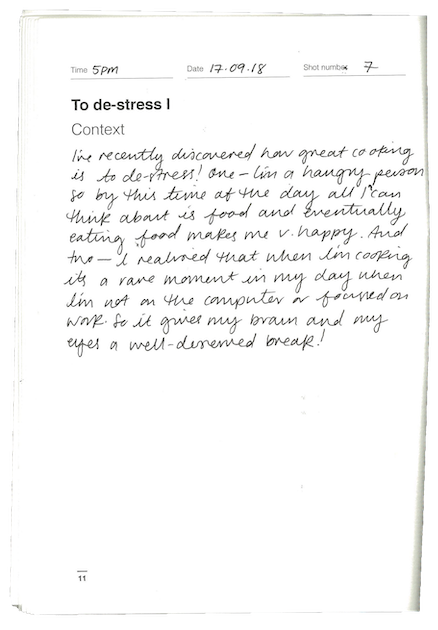 Time 5PM Date 17.09.18 Shot number 7
To de-stress I
Context
I've recently discovered how great cooking
is to de-stress! One - I'm a hangry person
so by this time of the day all I can
think about is food and eventually
eating food makes me v. happy. And
two - I realised that when I'm cooking
its a rare moment in my day when
I'm not on the computer or focused on
work. So it gives my brain and my
eyes a well-deserved break!
11